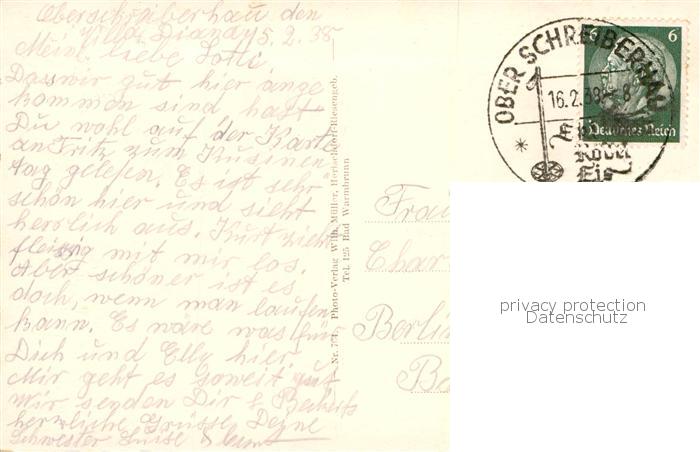 Oberschreiberhau den
Villa Diana, 5.2.38
Meine liebe Lotte
Dasswir gut hier ange
kommen sind hast
Du wohl auf der Karte
an Fritz zum
tag gelesen. Es ist sehr
schön hier und sieht
herrlich aus. Kurt zieht
fleissig mit mir los.
Aber schöner ist es
doch, wenn man laufen
kann. Es wäre was für
Dich und Elly hier
Mir geht es soweit gut
Wir senden Dir & Beckerts
herzliche Grüsse Deine
Schwester Luise & Kurt
Nr. Photo-Verlag Wilh. Müller, Herischdorf-Riesengeb.
Tel. 125 Bad Warmbrunn
OBER SCHREIBERHAU
16.2.38
Rodel
Eis
6 6
Deutsches Reich
Frau
Char
Berlin
privacy protection
Datenschutz